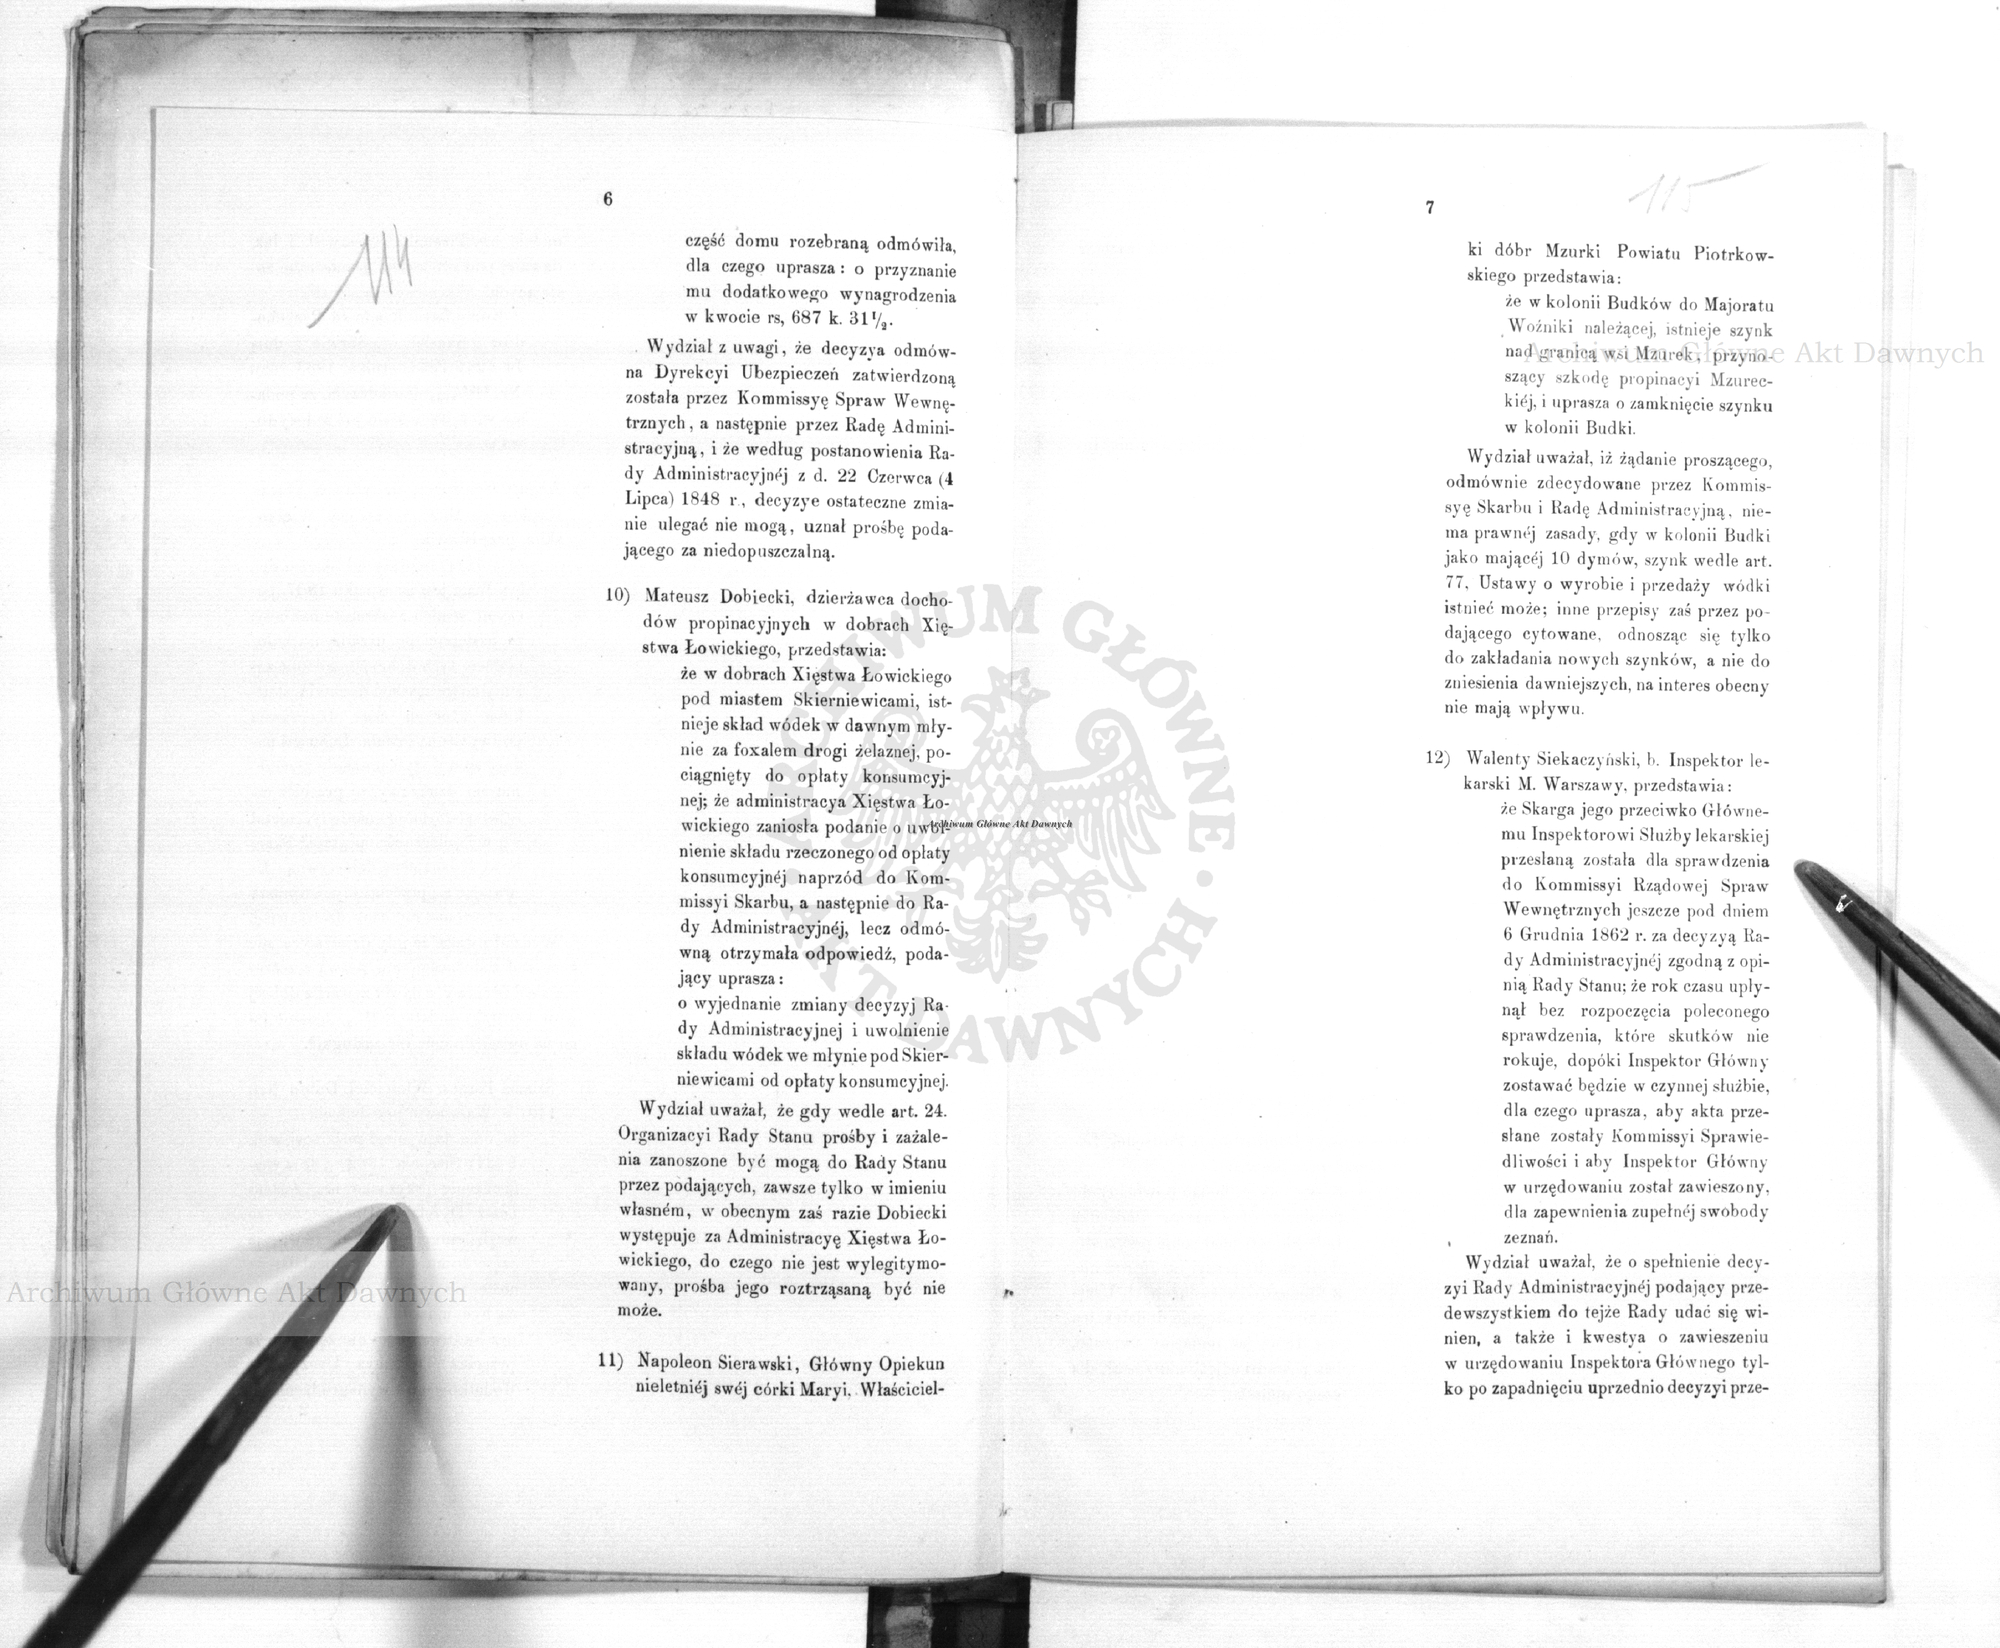 114
6
część domu rozebraną odmówiła,
dla czego uprasza: o przyznanie
mu dodatkowego wynagrodzenia
w kwocie rs, 687 k. 31 1/2.
Wydział z uwagi, że decyzya odmów-
na Dyrekcyi Ubezpieczeń zatwierdzoną
została przez Kommissyę Spraw Wewnę-
trznych, a następnie przez Radę Admini-
stracyjną, i że według postanowienia Ra-
dy Administracyjnéj z d. 22 Czerwca (4
Lipca) 1848 r., decyzye ostateczne zmia-
nie ulegać nie mogą, uznał prośbę poda-
jącego za niedopuszczalną.
10) Mateusz Dobiecki, dzierżawca docho-
dów propinacyjnych w dobrach Xię-
stwa Łowickiego, przedstawia:
że w dobrach Xięstwa Łowickiego
pod miastem Skierniewicami, ist-
nieje skład wódek w dawnym mły-
nie za foxalem drogi żelaznej, po-
ciągnięty do opłaty konsumcyj-
nej; że administracya Xięstwa Ło-
wickiego zaniosła podanie o uwol-
nienie składu rzeczonego od opłaty
konsumcyjnéj naprzód do Kom-
missyi Skarbu, a następnie do Ra-
dy Administracyjnéj, lecz odmó-
wną otrzymała odpowiedź, poda-
jący uprasza:
o wyjednanie zmiany decyzyj Ra-
dy Administracyjnej i uwolnienie
składu wódek we młynie pod Skier-
niewicami od opłaty konsumcyjnej.
Wydział uważał, że gdy wedle art. 24.
Organizacyi Rady Stanu prośby i zażale-
nia zanoszone być mogą do Rady Stanu
przez podających, zawsze tylko w imieniu
własném, w obecnym zaś razie Dobiecki
występuje za Administracyę Xięstwa Ło-
wickiego, do czego nie jest wylegitymo-
wany, prośba jego roztrząsaną być nie
może.
11) Napoleon Sierawski, Główny Opiekun
nieletniéj swéj córki Maryi, Właściciel-
115
7
ki dóbr Mzurki Powiatu Piotrkow-
skiego przedstawia:
że w kolonii Budków do Majoratu
Woźniki należącej, istnieje szynk
nad granicą wsi Mzurek, przyno-
szący szkodę propinacyi Mzurec-
kiéj, i uprasza o zamknięcie szynku
w kolonii Budki.
Wydział uważał, iż żądanie proszącego,
odmównie zdecydowane przez Kommis-
syę Skarbu i Radę Administracyjną, nie-
ma prawnéj zasady, gdy w kolonii Budki
jako mającéj 10 dymów, szynk wedle art.
77, Ustawy o wyrobie i przedaży wódki
istnieć może; inne przepisy zaś przez po-
dającego cytowane, odnosząc się tylko
do zakładania nowych szynków, a nie do
zniesienia dawniejszych, na interes obecny
nie mają wpływu.
12) Walenty Siekaczyński, b. Inspektor le-
karski M. Warszawy, przedstawia:
że Skarga jego przeciwko Główne-
mu Inspektorowi Służby lekarskiej
przesłaną została dla sprawdzenia
do Kommissyi Rządowej Spraw
Wewnętrznych jeszcze pod dniem
6 Grudnia 1862 r. za decyzyą Ra-
dy Administracyjnéj zgodną z opi-
nią Rady Stanu; że rok czasu upły-
nął bez rozpoczęcia poleconego
sprawdzenia, które skutków nie
rokuje, dopóki Inspektor Główny
zostawać będzie w czynnej służbie,
dla czego uprasza, aby akta prze-
słane zostały Kommissyi Sprawie-
dliwości i aby Inspektor Główny
w urzędowaniu został zawieszony,
dla zapewnienia zupełnéj swobody
zeznań.
Wydział uważał, że o spełnienie decy-
zyi Rady Administracyjnéj podający prze-
dewszystkiem do tejże Rady udać się wi-
nien, a także i kwestya o zawieszeniu
w urzędowaniu Inspektora Głównego tyl-
ko po zapadnięciu uprzednio decyzyi prze-
Archiwum Główne Akt Dawnych
Archiwum Główne Akt Dawnych
Archiwum Główne Akt Dawnych
ARCHIWUM GŁÓWNE · AKT DAWNYCH ·